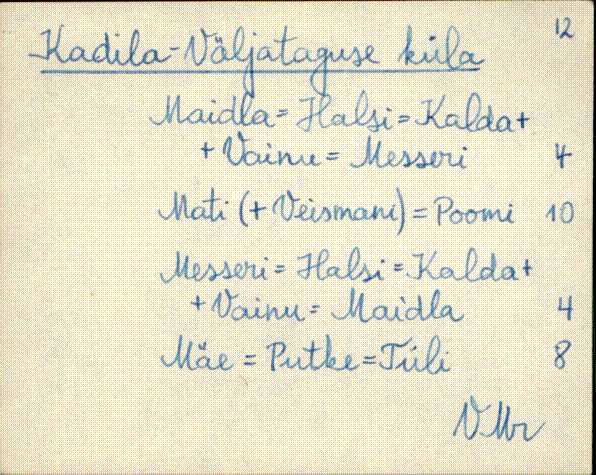 12
Kadila-Väljataguse küla
Maidla = Halsi = Kalda +
+ Vainu = Messeri 4
Mati (+ Veismani) = Poomi 10
Messeri = Halsi = Kalda +
+ Vainu = Maidla 4
Mäe = Putke = Tüli 8